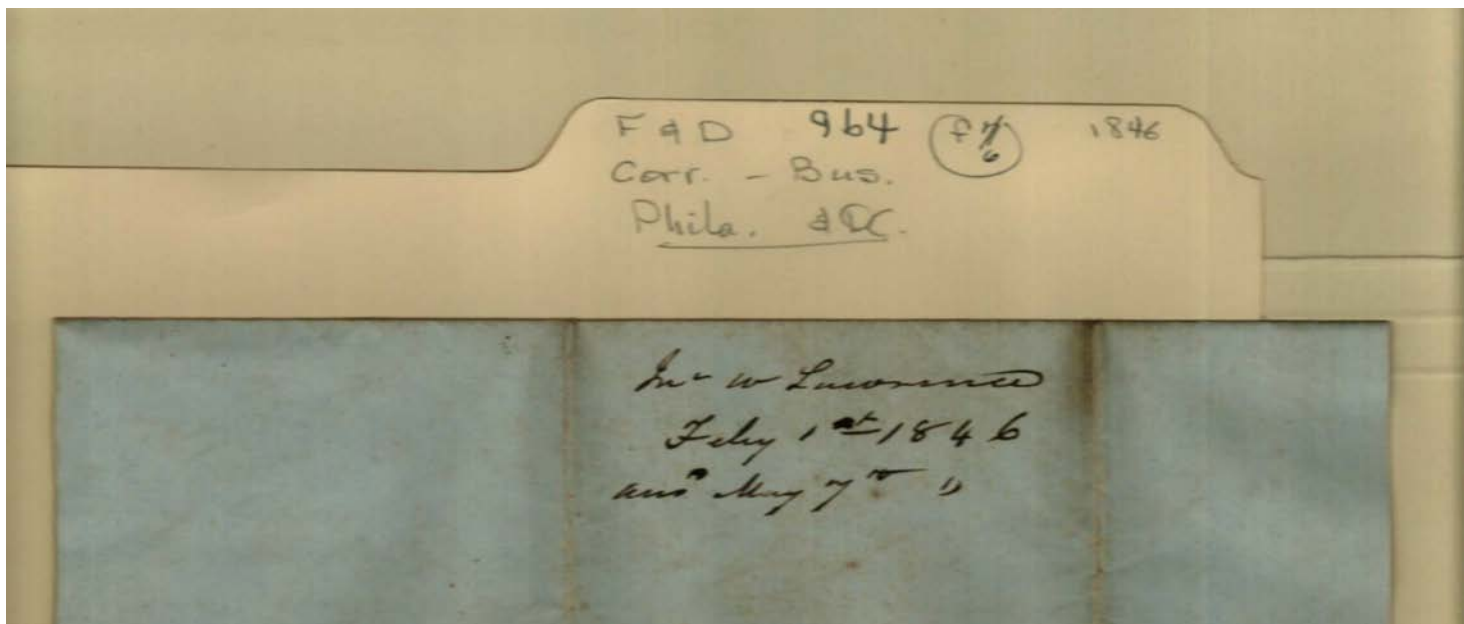 F & D 964 f 6 1846
Corr. - Bus.
Phila. & DC.
Jno W Lawrence
Feby 1st 1846
ansd May 7th "